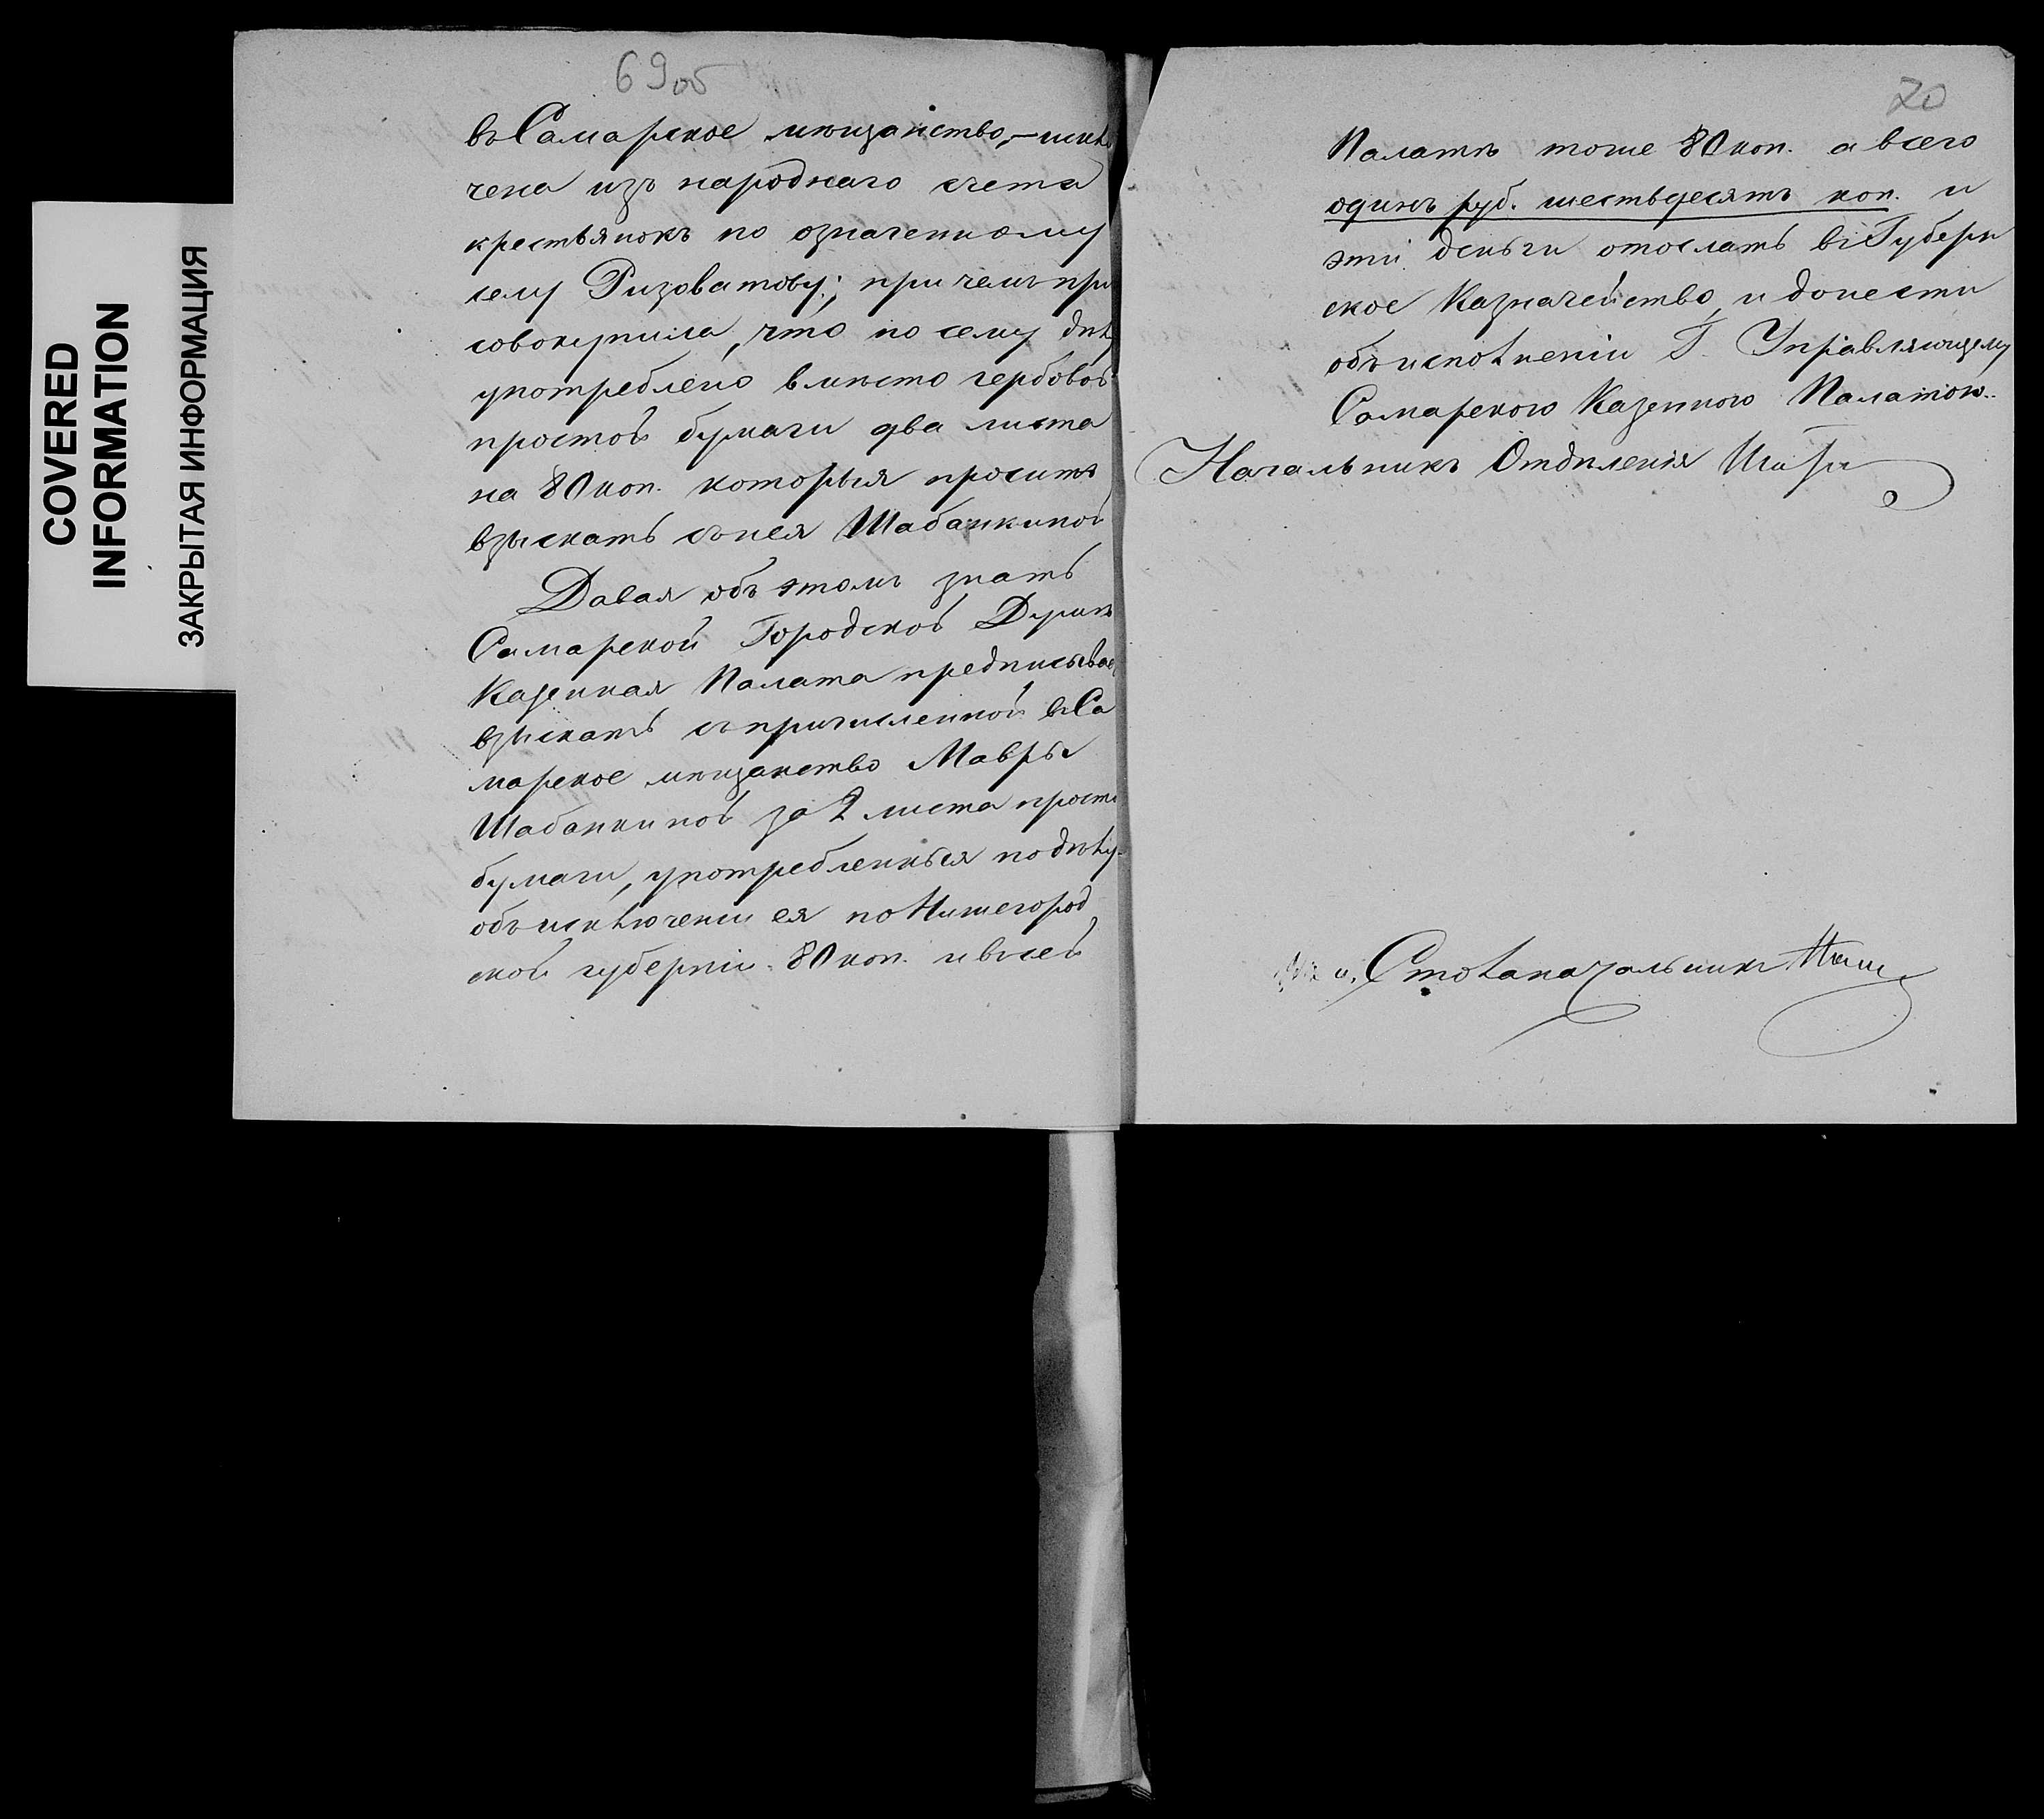 COVERED
INFORMATION
ЗАКРЫТАЯ ИНФОРМАЦИЯ
69об
въ Самарское мѣщанство, – исклю
чена изъ народнаго счета
крестьянокъ по означенному
селу Ризоватову; при чемъ при
совокупила, что по сему дѣлу
употреблено вмѣсто гербовой
простой бумаги два листа
на 80 коп. которыя проситъ
взыскать съ нея Шабанкиной
Давая объ этомъ знать
Самарской Городской Думѣ
Казенная Палата предписывае
взыскать съ причисленной въ Са
марское мѣщанство Мавры
Шабанкиной за 2 листа прост
бумаги, употребленныя по дѣлу
объ исключеніи ея по Нижегород
ской губерніи 80 коп. и въ сей
70
Палатѣ тоже 80 коп. а всего
одинъ руб. шестьдесятъ коп. и
эти деньги отослать въ Губерн
ское Казначейство, и донести
объ исполненіи Г. Управляющему
Самарского Казенного Палатою.
Начальникъ Отдѣленія
Столаначальникъ